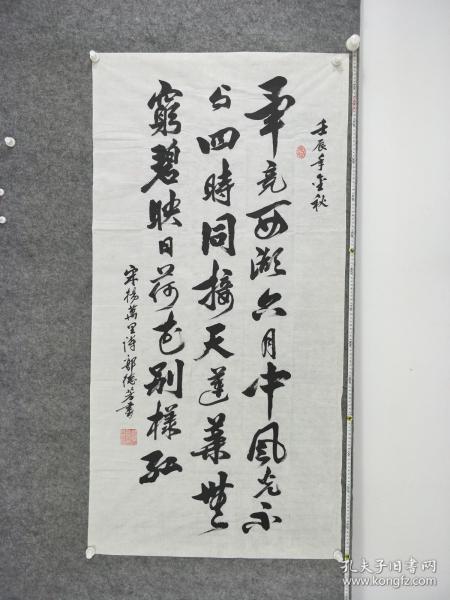 壬辰年金秋
畢竟西湖六月中風光不
与四時同接天蓮葉無
窮碧映日荷花别樣紅
宋楊萬里詩郭德書
孔夫子旧书网
www.kongfz.com